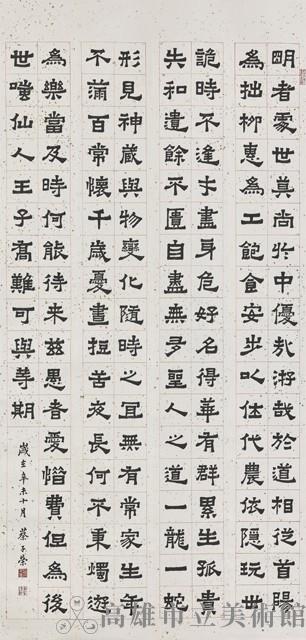 明者處世莫尚於中優哉游哉道相從首陽
為拙柳惠為工飽食安步以仕代農依隱玩世
詭時不逢才盡身危好名得華有群累生孤貴
失和遺餘不匱自盡無多聖人之道一龍一蛇
形見神藏與物變化隨時之宜無有常家生年
不滿百常懷千歲憂晝短苦夜長何不秉燭遊
為樂當及時何能待來茲愚者愛惜費但為後
世嗤仙人王子喬難可與等期
歲在辛未十月 蔡子榮
高雄市立美術館